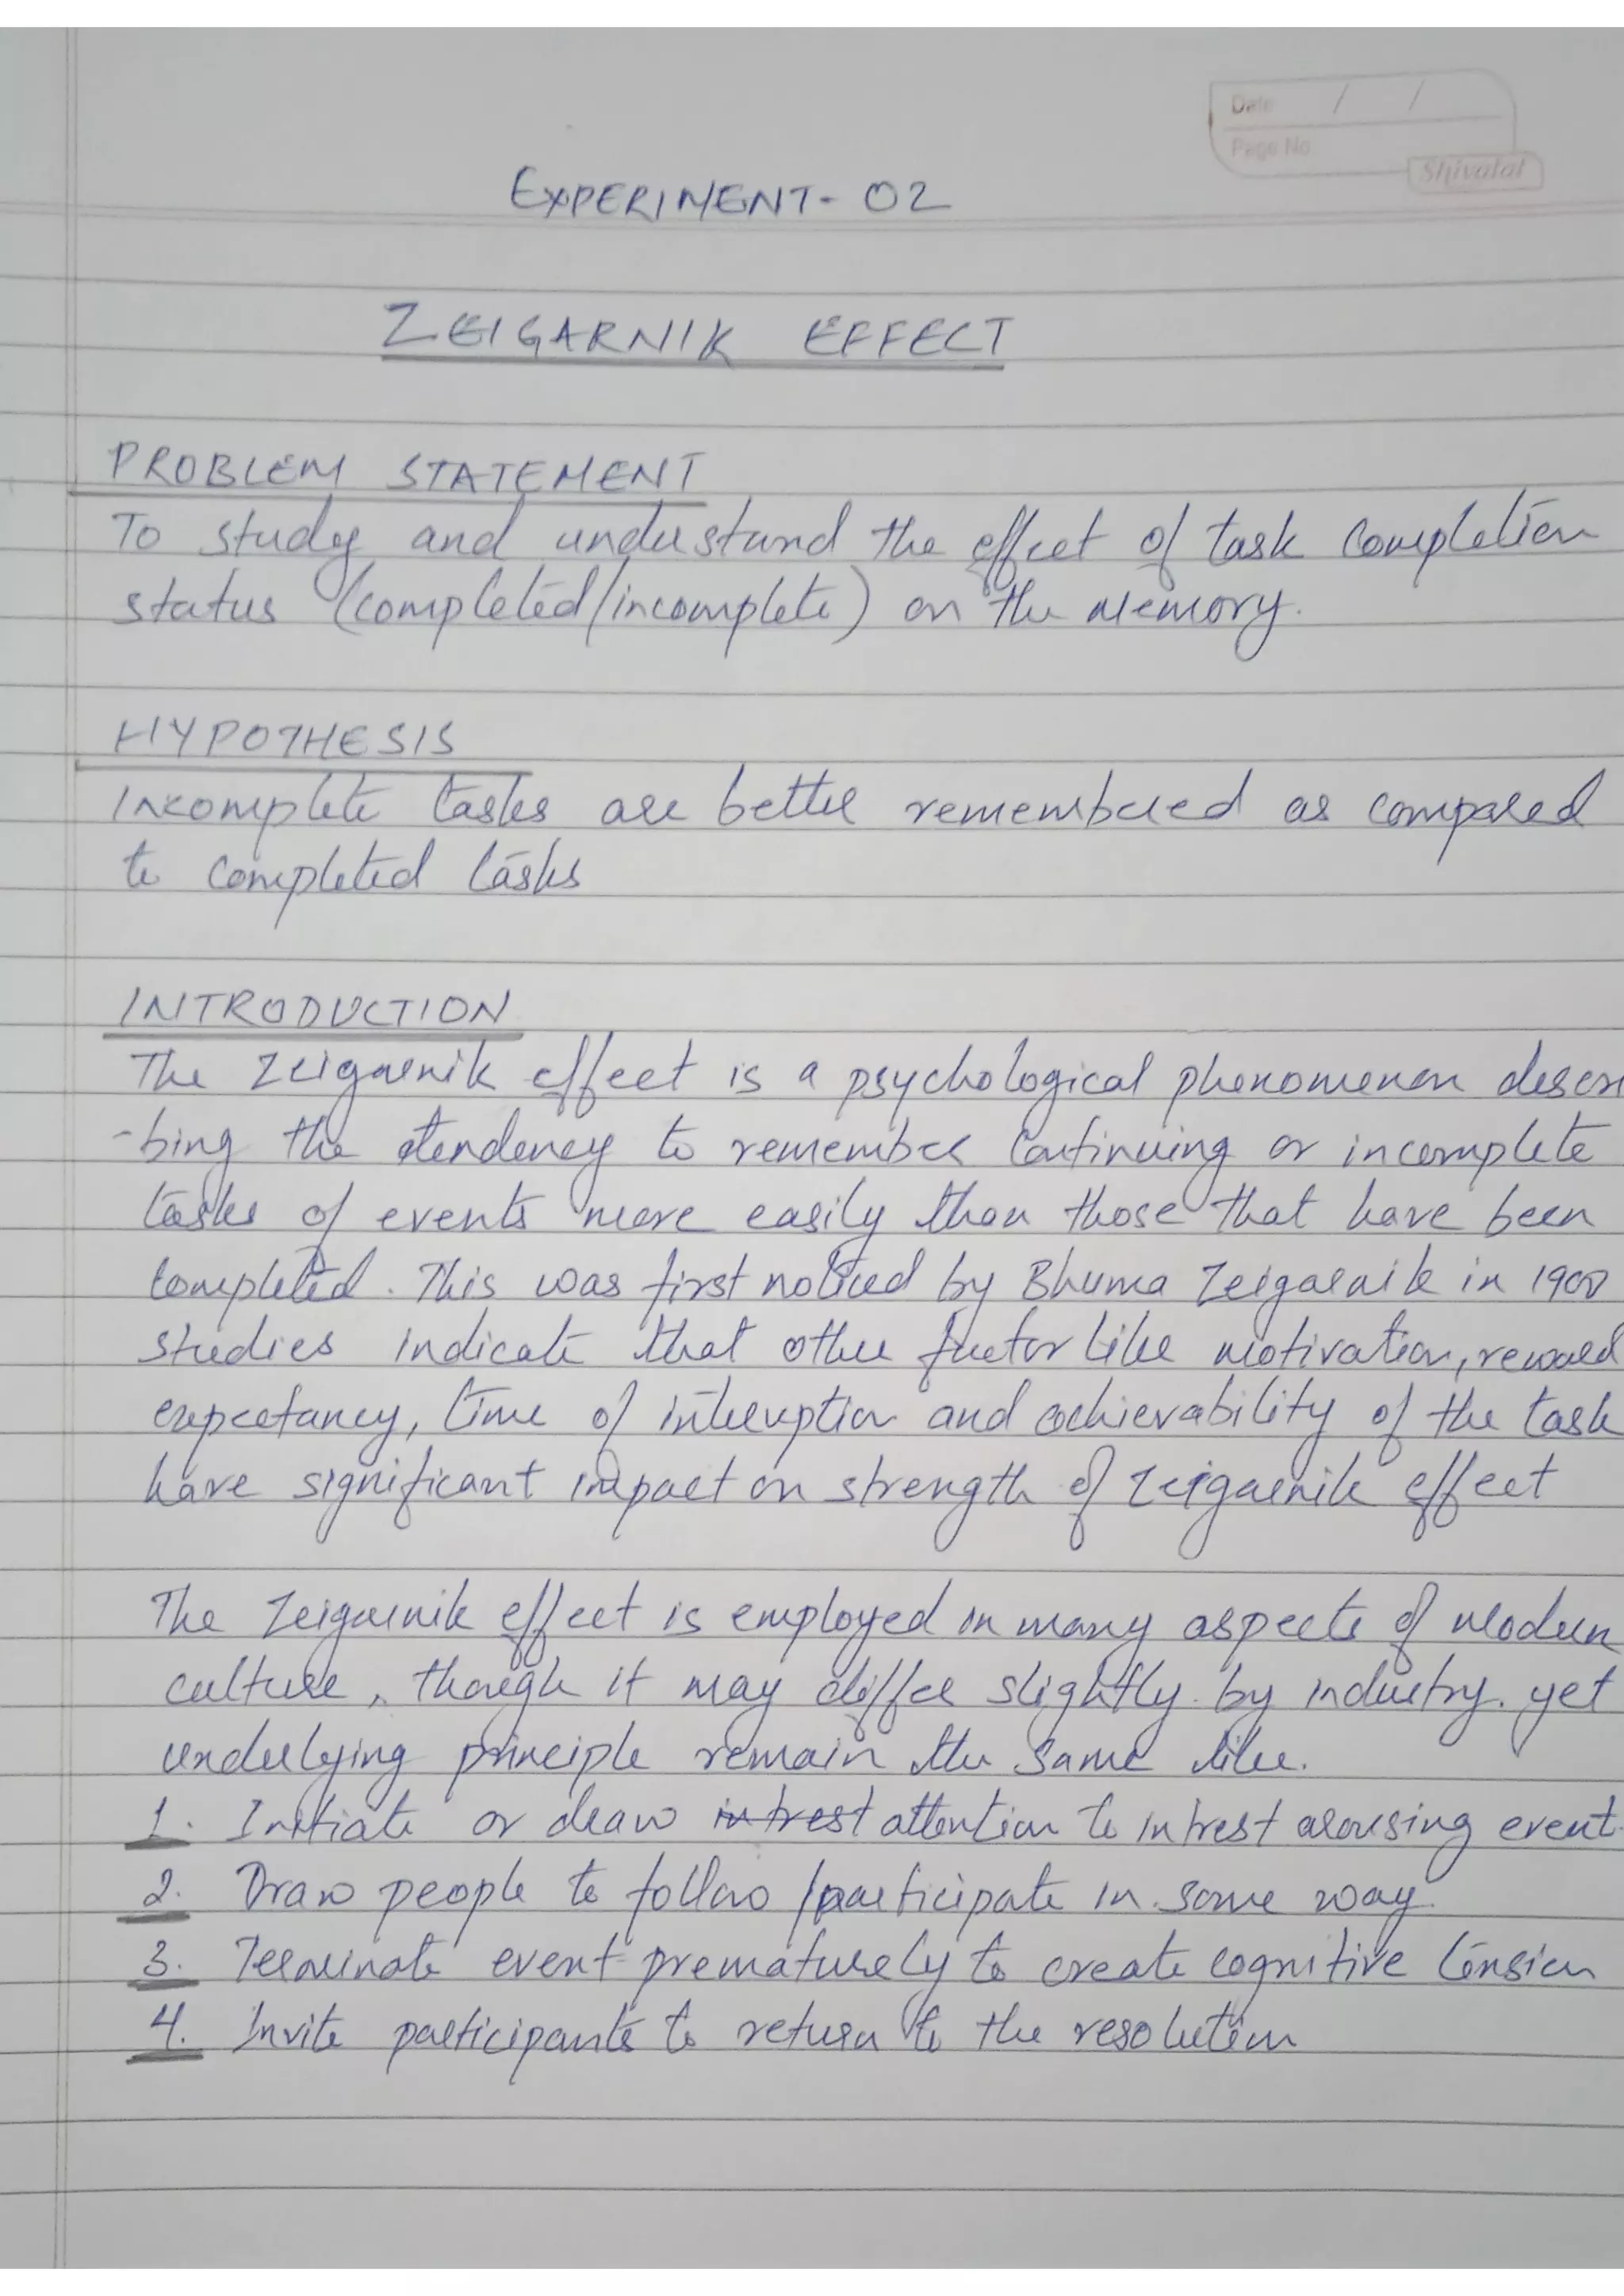 Date / /
Page No
Shivalal
EXPERIMENT- 02
ZEIGARNIK EFFECT
PROBLEM STATEMENT
To study and understand the effect of task completion
status (completed/incomplete) on the Memory.
HYPOTHESIS
Incomplete tasks are better remembered as compared
to completed tasks
INTRODUCTION
The Zeigarnik effect is a psychological phenomenon descri
-bing the tendency to remember continuing or incomplete
tasks of events more easily than those that have been
completed. This was first noticed by Bhuma Zeigarnik in
studies indicate that other factor like motivation, reward
expectancy, time of interruption and achievability of the task
have significant impact on strength of Zeigarnik effect
The Zeigarnik effect is employed in many aspects of modern
culture, though it may differ slightly by industry. yet
underlying principle remain the same like.
1. Initiate or draw intrest attention to intrest arousing event.
2. Draw people to follow /participate in some way.
3. Terminate event prematurely to create cognitive tension
4. Invite participants to return to the resolution